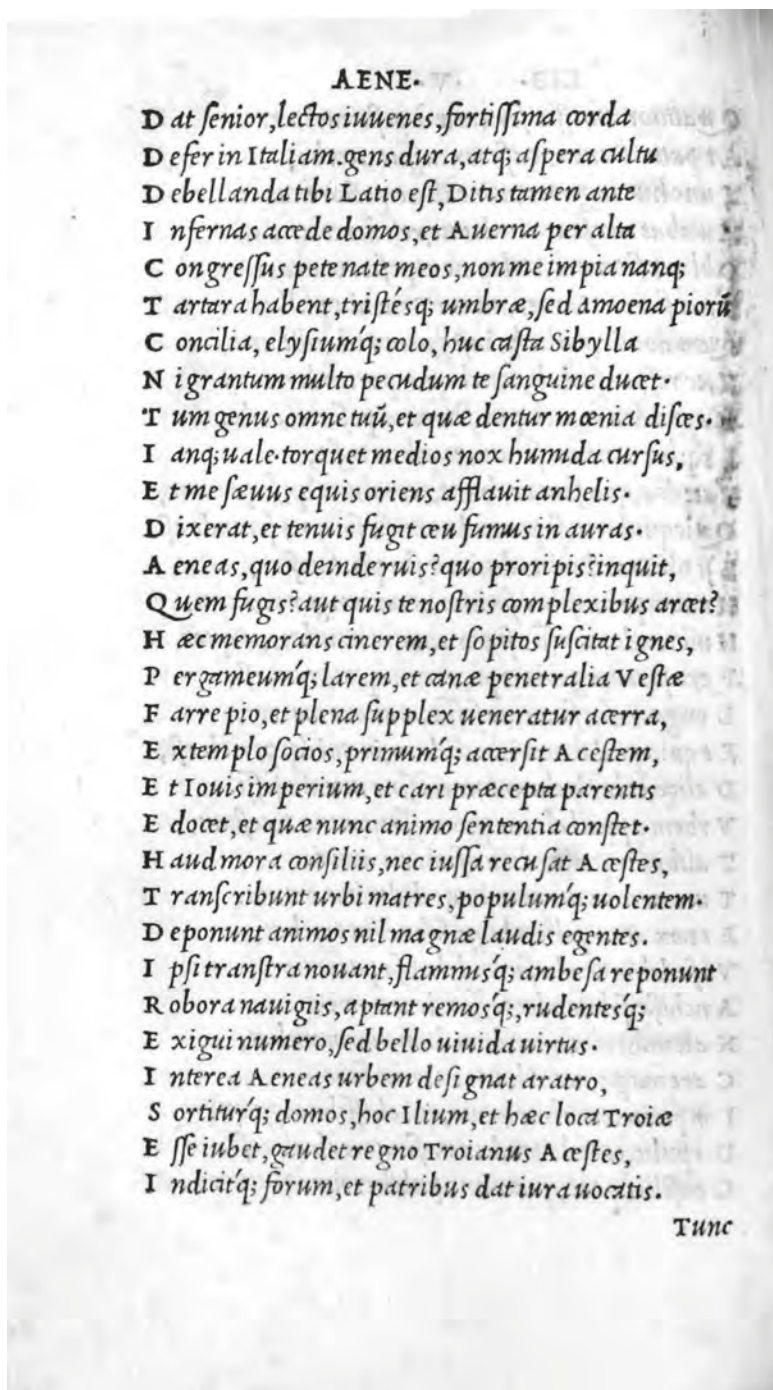 AENE.
D at ſenior, lectos iuuenes, fortiſſima corda
D efer in Italiam. gens dura, atq; aſpera cultu
D ebellanda tibi Latio eſt, Ditis tamen ante
I nfernas accede domos, et Auerna per alta
C ongreſſus pete nate meos, non me impia nanq;
T artara habent, triſtésq; umbræ, ſed amoena piorũ
C oncilia, elyſium´q; colo, huc caſta Sibylla
N igrantum multo pecudum te ſanguine ducet.
T um genus omne tuũ, et quæ dentur mœnia diſces.
I anq; uale. torquet medios nox humida curſus,
E t me ſæuus equis oriens afflauit anhelis.
D ixerat, et tenuis fugit ceu fumus in auras.
A eneas, quo deinde ruis? quo proripis? inquit,
Quem fugis? aut quis te noſtris complexibus arcet?
H æc memorans cinerem, et ſopitos ſuſcitat ignes,
P ergameum´q; larem, et canæ penetralia Veſtæ
F arre pio, et plena ſupplex ueneratur acerra,
E xtemplo ſocios, primum´q; accerſit Aceſtem,
E t Iouis imperium, et cari præcepta parentis
E docet, et quæ nunc animo ſententia conſtet.
H aud mora conſiliis, nec iuſſa recuſat Aceſtes,
T ranſcribunt urbi matres, populum´q; uolentem.
D eponunt animos nil magnæ laudis egentes.
I pſi tranſtra nouant, flammis´q; ambeſa reponunt
R obora nauigiis, aptant remos´q;, rudentes´q;
E xigui numero, ſed bello uiuida uirtus.
I nterea Aeneas urbem deſignat aratro,
S ortitur´q; domos, hoc Ilium, et hæc loca Troiæ
E ſſe iubet, gaudet regno Troianus Aceſtes,
I ndicit´q; forum, et patribus dat iura uocatis.
Tunc